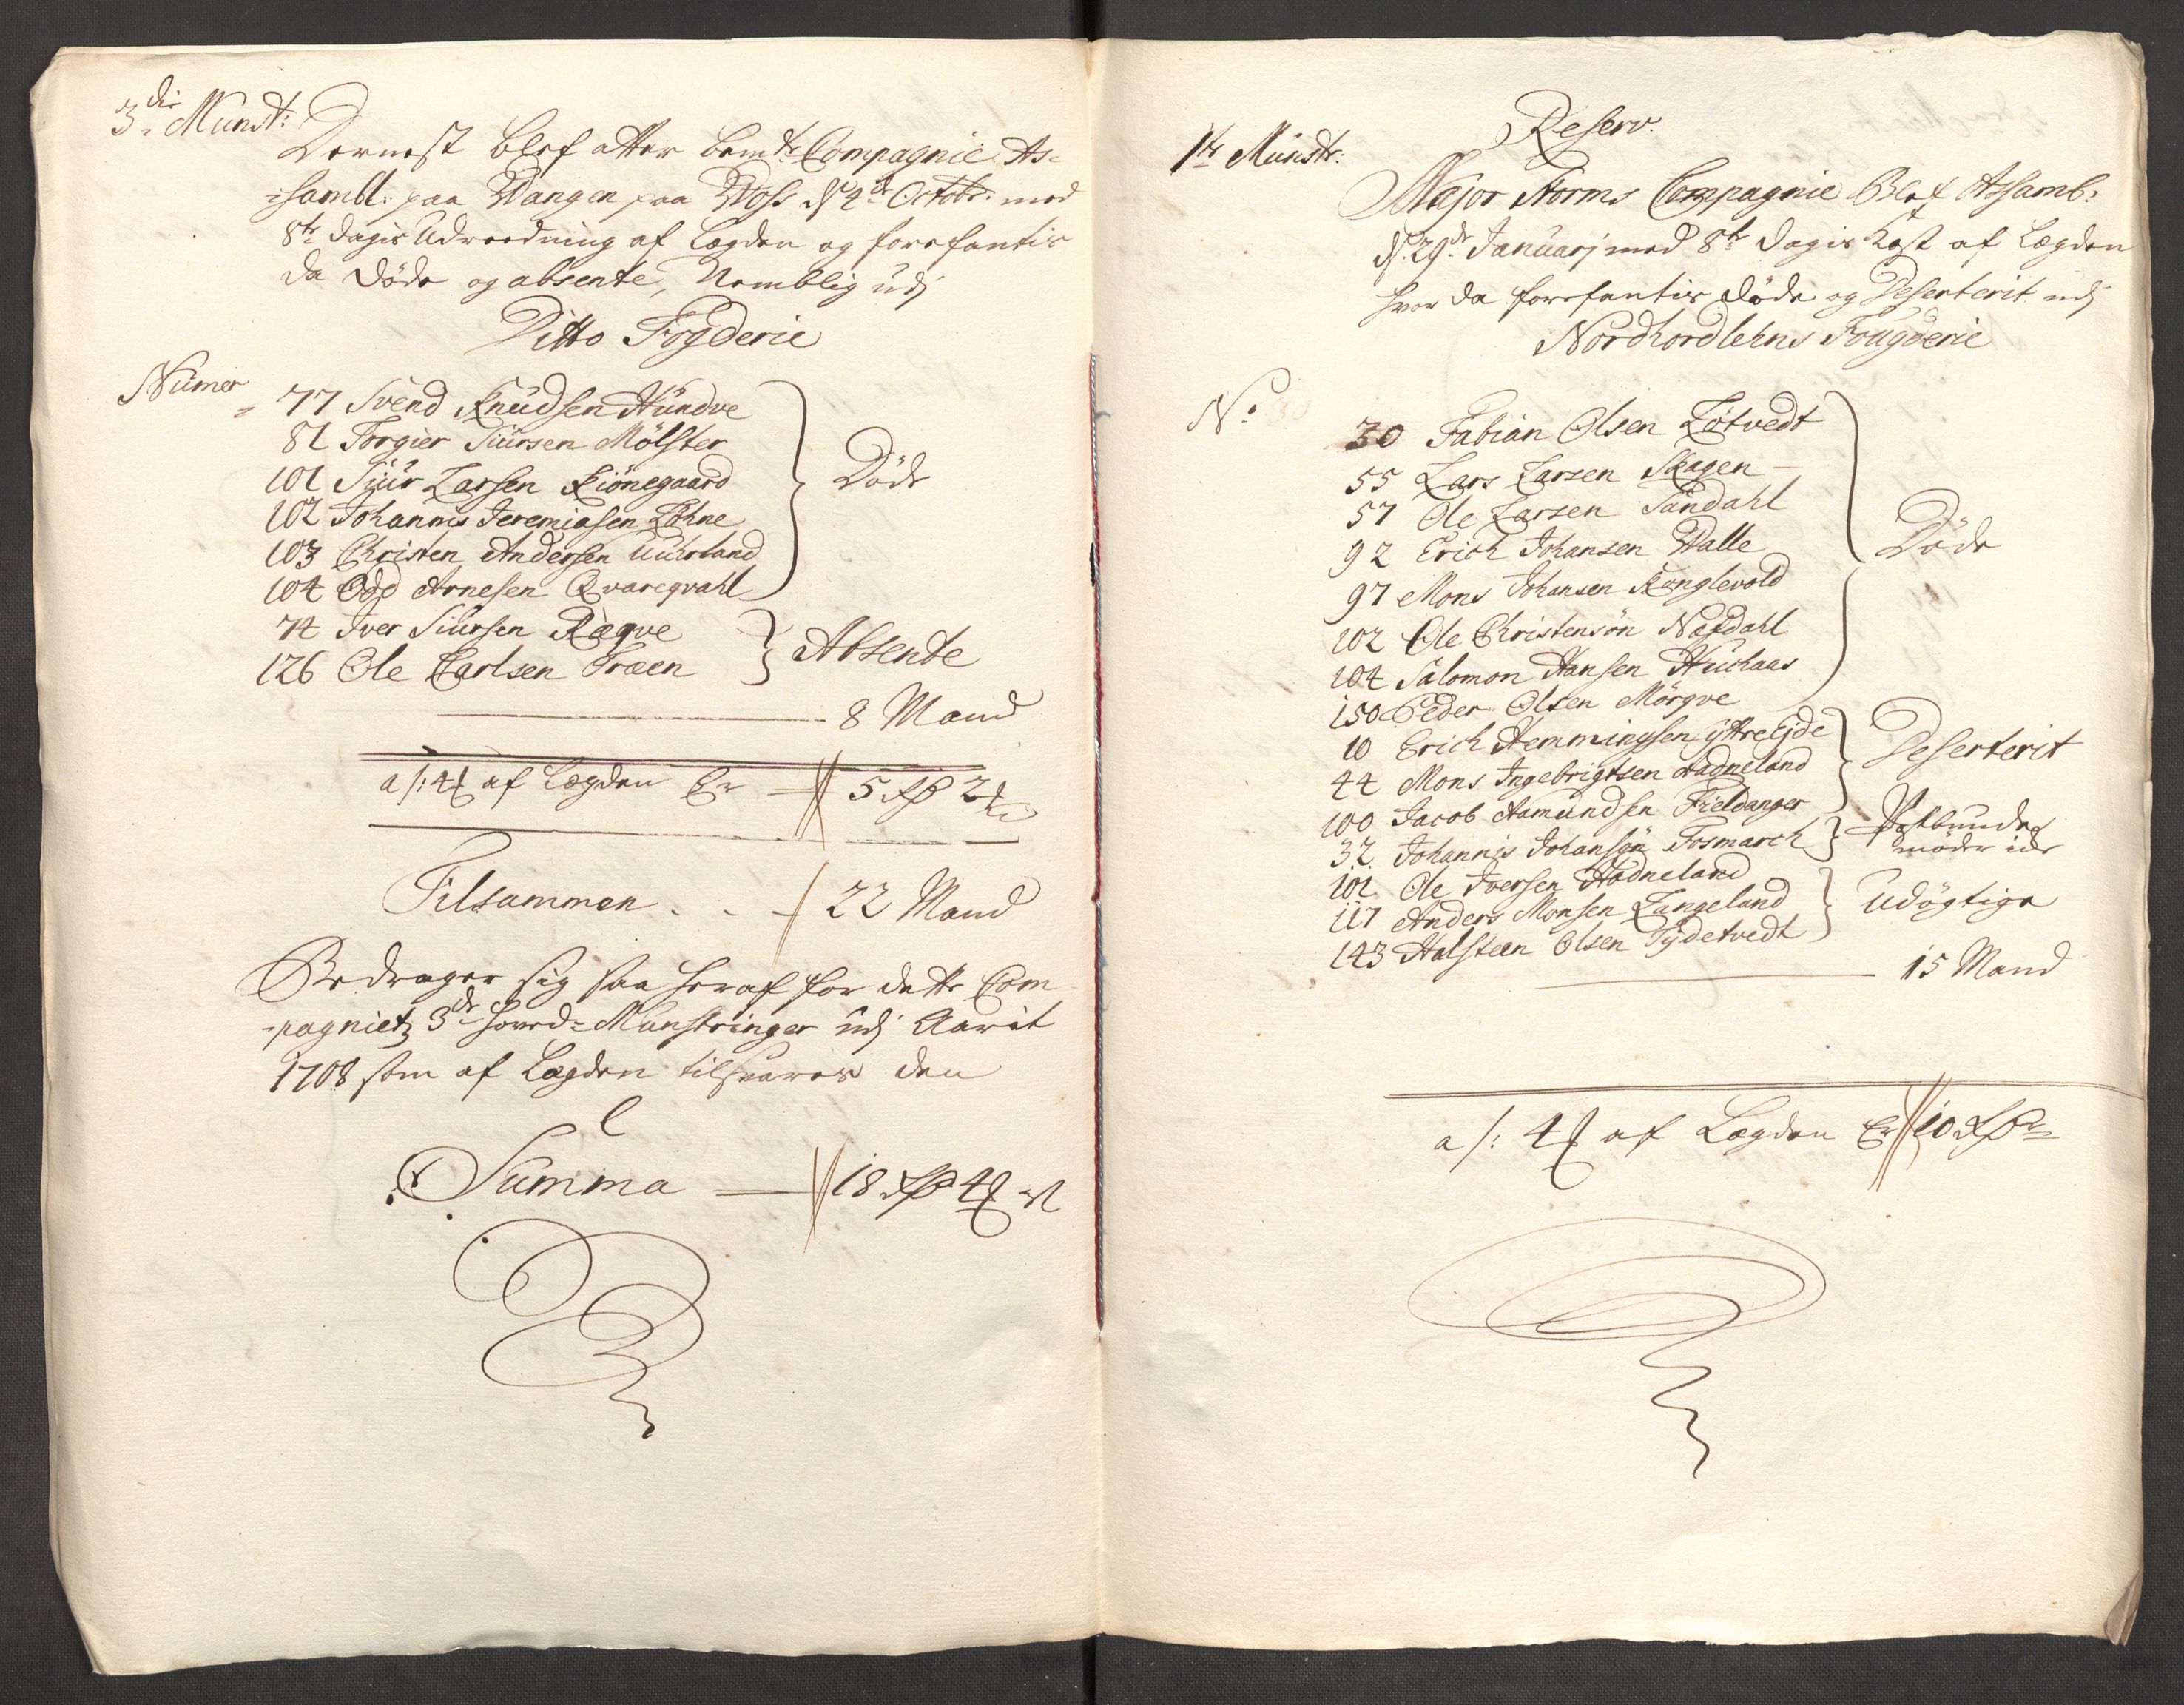 3die Munst:
Dernest blef atter bemte Compagnie As=
=sambl: paa Wangen paa Woss d 4de Octobr: med
8te dagis Udreedning af Lægden og forefantis
da Døde og absente, Nemblig udj
Ditto Fogderie
Numer
77 Svend Knudsen Hundve
81 Torgier Siursen Mölster
101 Siur Larsen Kiönegaard
102 Johannis Jeremiasen Löhne
103 Christen Andersen Uuhrland
104 Odd Arnesen Qvareqvahl
Döde
74 Iver Siursen Ræqve
126 Ole Carlsen Træen
Absente
8 Mand
a /: 4 af Lægden Er 5 2
Tilsammen . . 22 Mand
Bedrager sig saa heraf for dette Com
=pagnietz 3de hoved=Munstringer udj Aarit
1708 som af Lægden tilsvares den
Summa 18 4
1te Munstr:
Reserv:
Major Storms Compagnie Blef Assamb:
d: 29de Januarj med 8te dagis Kost af Lægden
hvor da forefantis döde og Deserterit udj
Nordhordlehns Fougderie
No
30 Fabian Olsen Lötvedt
55 Lars Larsen Skagen
57 Ole Larsen Sandahl
92 Erich Johansen Walle
97 Mons Johansen Konglevold
102 Ole Christensön Nægdahl
104 Salomon Hansen Hiichaas
150 Peder Olsen Mörqve
Döde
10 Erich Hemmingsen Yttre Ejde
44 Mons Ingebrigtsen Aadneland
100 Jacob Aamundsen Fieldanger
Deserterit
32 Johannis Johansön Fosmarch
Postbunde
möder iche
101 Ole Iversen Hodneland
117 Anders Monsen Langeland
143 Halsteen Olsen Tydetvedt
Udögtige
15 Mand
a /: 4 af Lægden Er 10